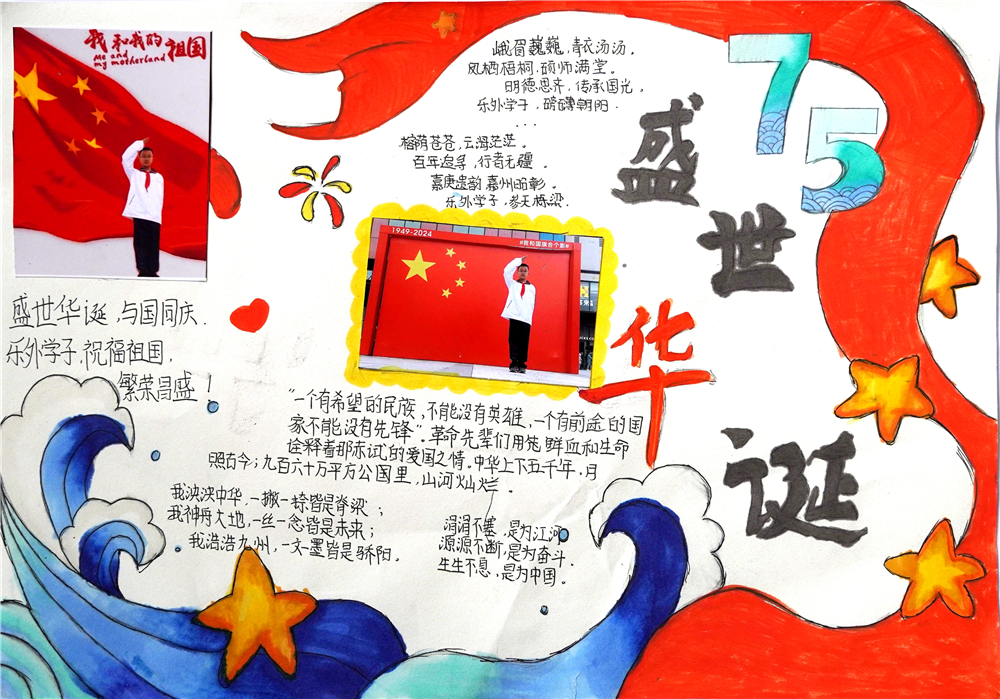 我和我的祖国
Me and
my motherland
峨眉巍巍，青衣汤汤。
凤栖梧桐，硕师满堂。
明德思齐，传承国光，
乐外学子，磅礴朝阳．
...
榕荫苍苍，云海茫茫．
百年追寻，行者无疆．
嘉庚遗韵 嘉州昭彰．
乐外学子，参天栋梁．
75
盛世华诞
1949-2024
#我和国旗合个影#
盛世华诞，与国同庆．
乐外学子，祝福祖国，
繁荣昌盛！
"一个有希望的民族，不能没有英雄，一个有前途的国
家不能没有先锋"．革命先辈们用他鲜血和生命
诠释着那赤诚的爱国之情．中华上下五千年，月
照古今；九百六十万平方公里，山河灿烂．
我泱泱中华，一撇一捺皆是脊梁；
我神舟大地，一丝一念皆是未来；
我浩浩九州，一文一墨皆是骄阳．
涓涓不塞，是为江河
源源不断，是为奋斗．
生生不息，是为中国。